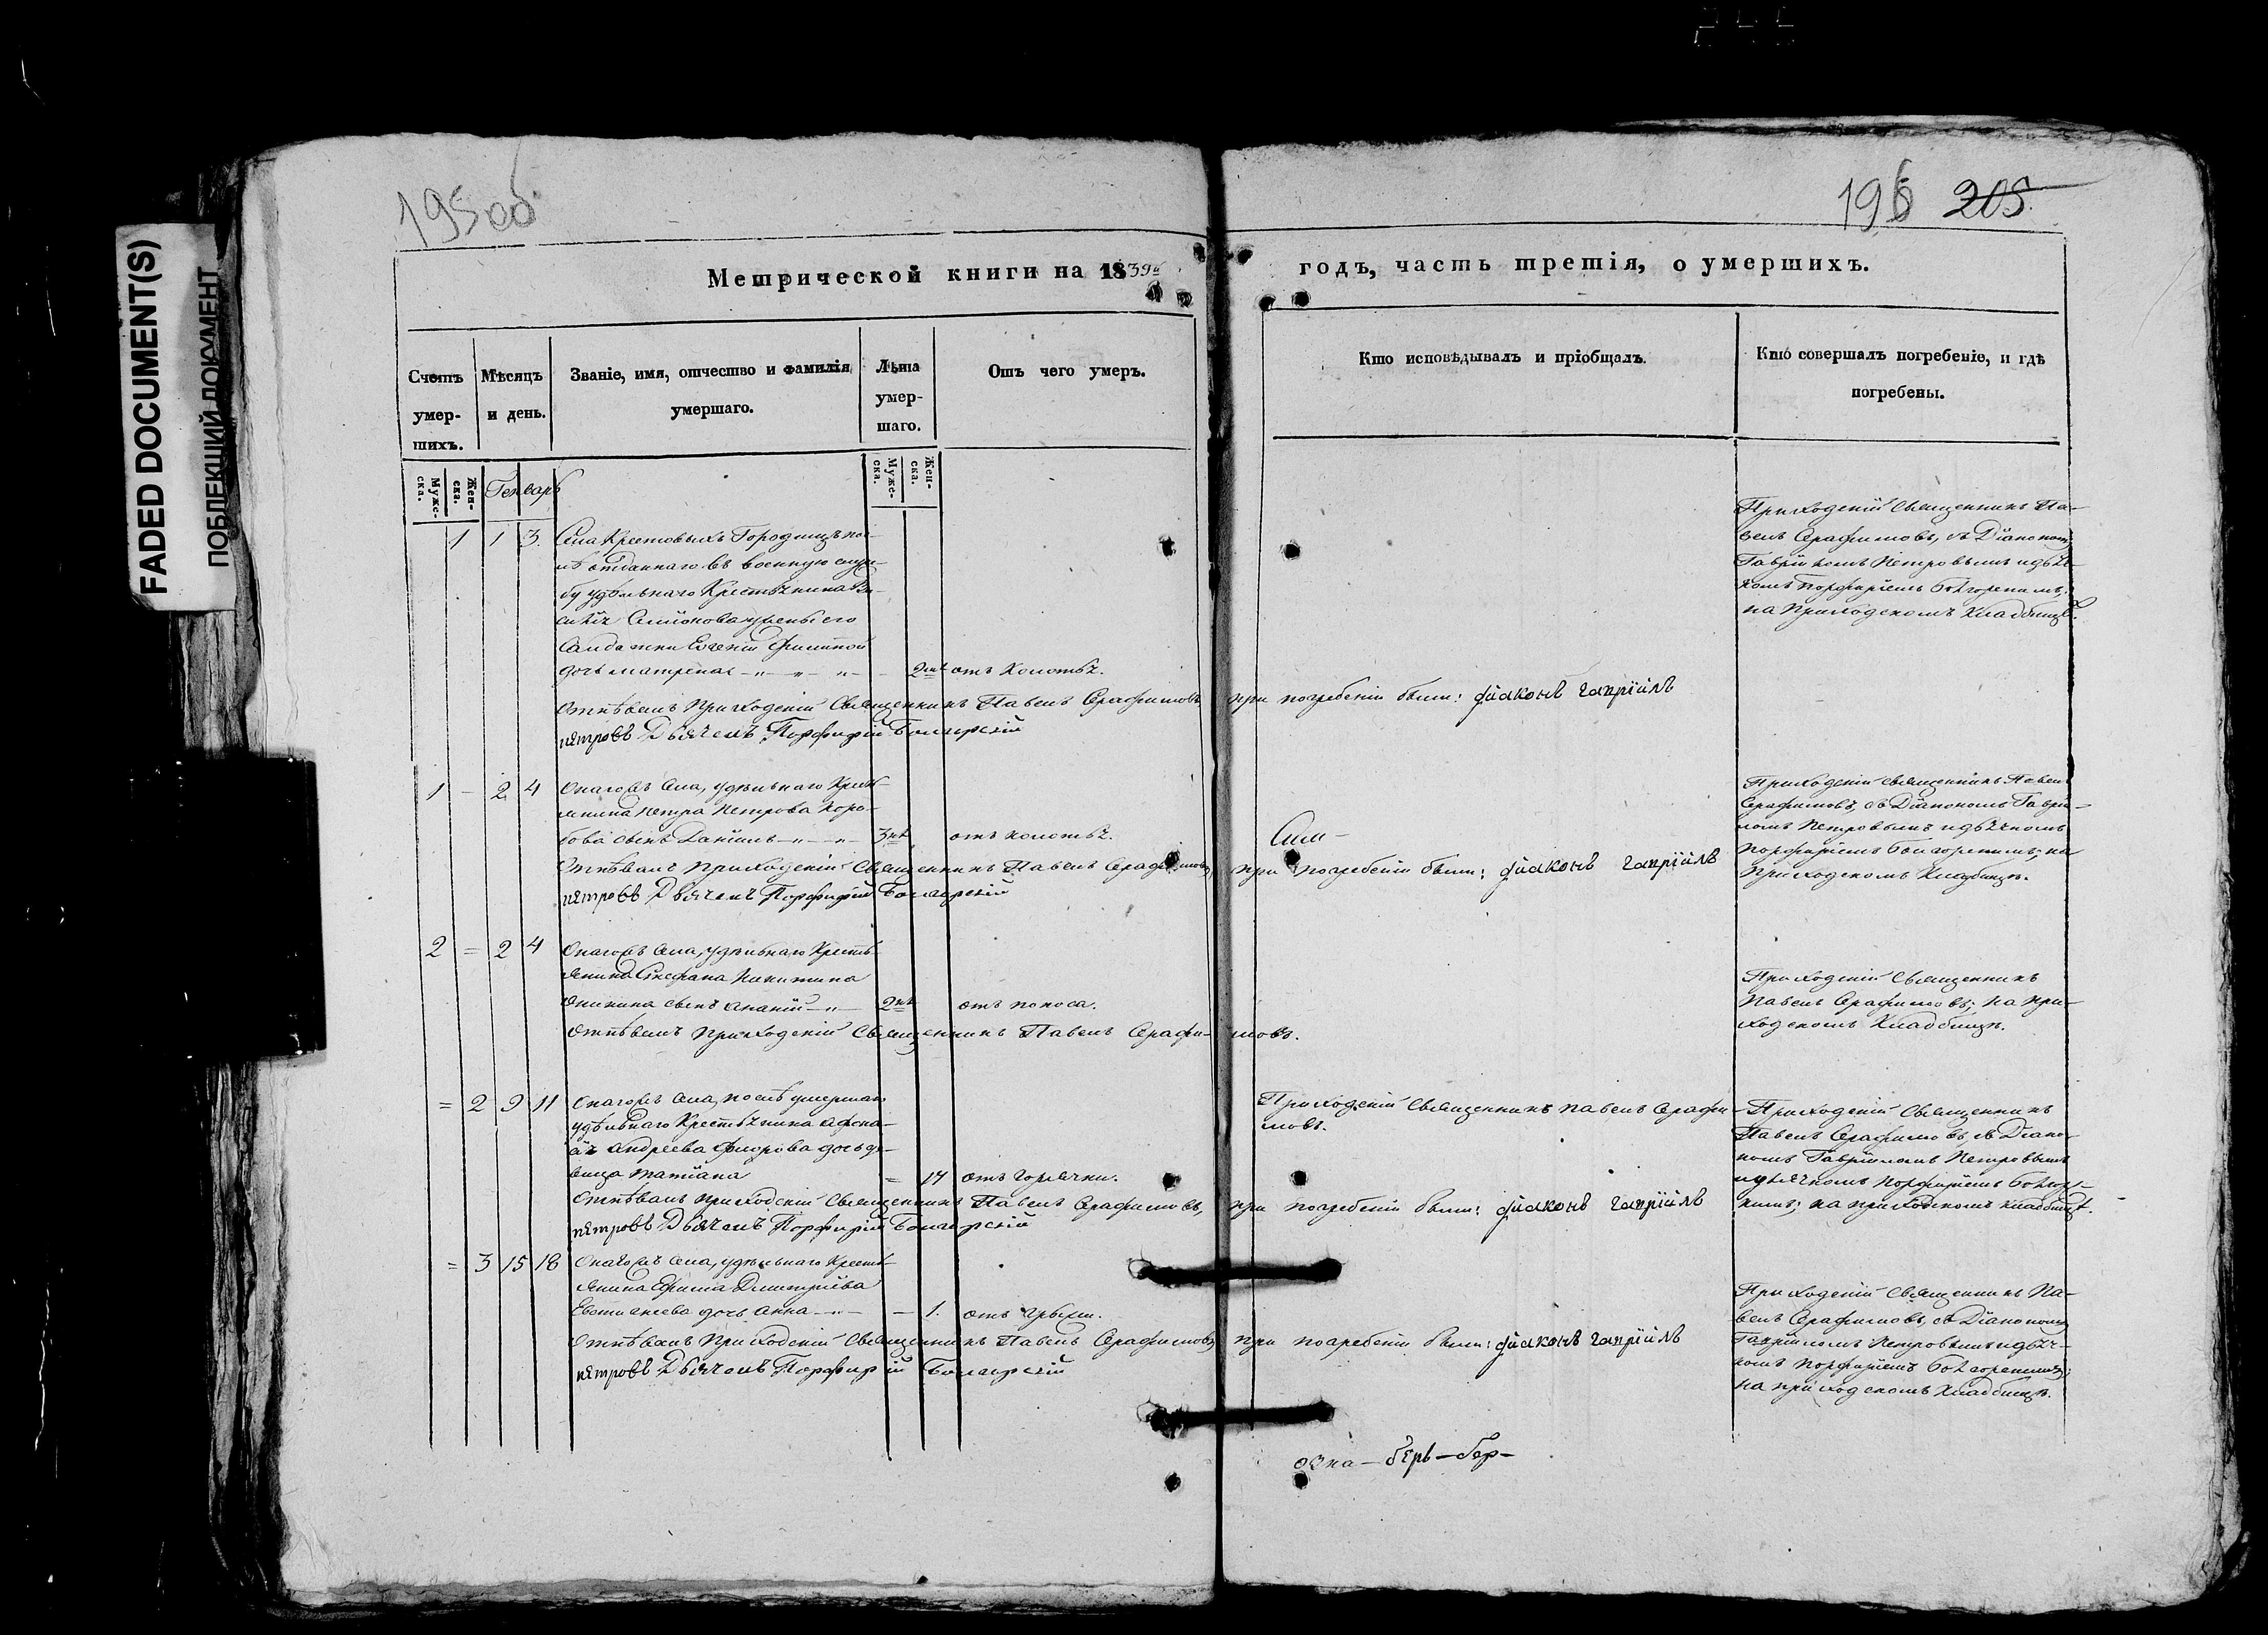 FADED DOCUMENT(S)
ПОБЛЕКШИЙ ДОКУМЕНТ
195 об
196 205.
Метрической книги на 1839й
годъ, часть третія, о умершихъ.
Счетъ умер-шихъ.
Мѣсяцъ и день.
Званіе, имя, отчество и фамилія умершаго.
Лѣта умер-шаго.
Отъ чего умеръ.
Кто исповѣдывалъ и пріобщалъ.
Кто совершалъ погребеніе, и гдѣ погребены.
Муже-ска.
Жен-ска.
Генварь
Муже-ска.
Жен-ска.
1 1 3. Села Крестовыхъ Городищъ по-
лѣ отданнаго въ военную служ-
бу удѣльнаго Крестьянина Ва-
силія Семіонова жены его
Солдатки Евгеніи
дочь Матрена 2 нед отъ колотья.
Приходскій Священникъ Па-
велъ Серафимовъ, съ Діакономъ
Гавріиломъ Петровымъ и дьяч-
комъ Порфиріемъ
на Приходскомъ Кладбищѣ.
Отпѣвалъ Приходскій Священникъ Павелъ Серафимовъ при погребеніи были: діаконъ гавріилъ
петровъ Дьячекъ Порфирій
1 - 2 4 Онагожъ села, удѣльнаго Кресть-
янина Петра Петрова Коро-
бова сынъ Даніилъ 3 нед отъ колотья.
Приходскій священникъ Павелъ
Серафимовъ, съ Діакономъ Гаврі-
ломъ Петровымъ и дьячкомъ
Порфиріемъ на
Приходскомъ Кладбищѣ.
Отпѣвалъ Приходскій Священникъ Павелъ Серафимовъ при погребеніи были: діаконъ гавріилъ
петровъ Дьячекъ Порфирій
2 = 2 4 Онагожъ села, удѣльнаго Кресть-
янина Стефана Никитина
сынъ Ананій 2 нед отъ поноса.
Приходскій Священникъ
Павелъ Серафимовъ; на При-
ходскомъ Кладбищѣ.
Отпѣвалъ Приходскій Священникъ Павелъ Серафи-мовъ.
= 2 9 11 Онагожъ села, послѣ умершаго
удѣльнаго Крестьянина Афона-
сія Андреева Фиорова дочь дѣ-
вица Татіана = 17 отъ горячки.
Приходскій Священникъ Павелъ Серафи-
мовъ.
Приходскій Священникъ
Павелъ Серафимовъ, съ Діако-
номъ Гавріиломъ Петровымъ
и дьячкомъ Порфиріемъ
на приходскомъ кладбищѣ.
Отпѣвалъ приходскій Священникъ Павелъ Серафимовъ, при погребеніи были: діаконъ гавріилъ
петровъ Дьячекъ Порфирій
= 3 15 18 Онагожъ села, удѣльнаго Кресть-
янина Ефима Димитріева
дочь Анна - 1. отъ грыжи.
Приходскій священникъ Па-
велъ Серафимовъ, съ Діакономъ
Гавріиломъ Петровымъ и дьяч-
комъ Порфиріемъ
на приходскомъ Кладбищѣ.
Отпѣвалъ Приходскій Священникъ Павелъ Серафимовъ при погребеніи были: діаконъ гавріилъ
петровъ Дьячекъ Порфирій